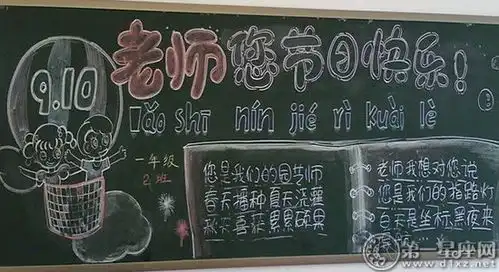 9.10
老师您节日快乐!
lǎo shī nín jié rì kuài lè
一年级
2班
您是我们的园艺师
春天播种夏天浇灌
秋天喜获累累硕果
老师我想对您说
您是我们的指路灯
白天是坐标黑夜来
第一星座网
www.d1xz.net